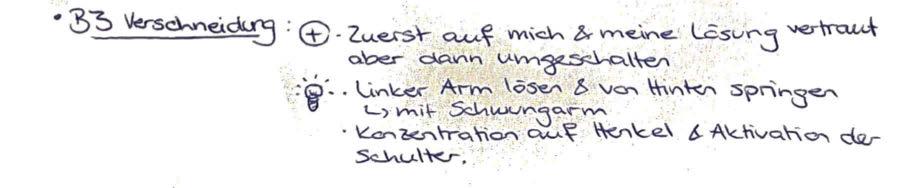 • B3 Verschneidung : ⊕ · Zuerst auf mich & meine Lösung vertraut
aber dann umgeschalten
· Linker Arm lösen & von Hinten springen
↳ mit Schwungarm
· Konzentration auf Henkel & Aktivation der
Schulter.